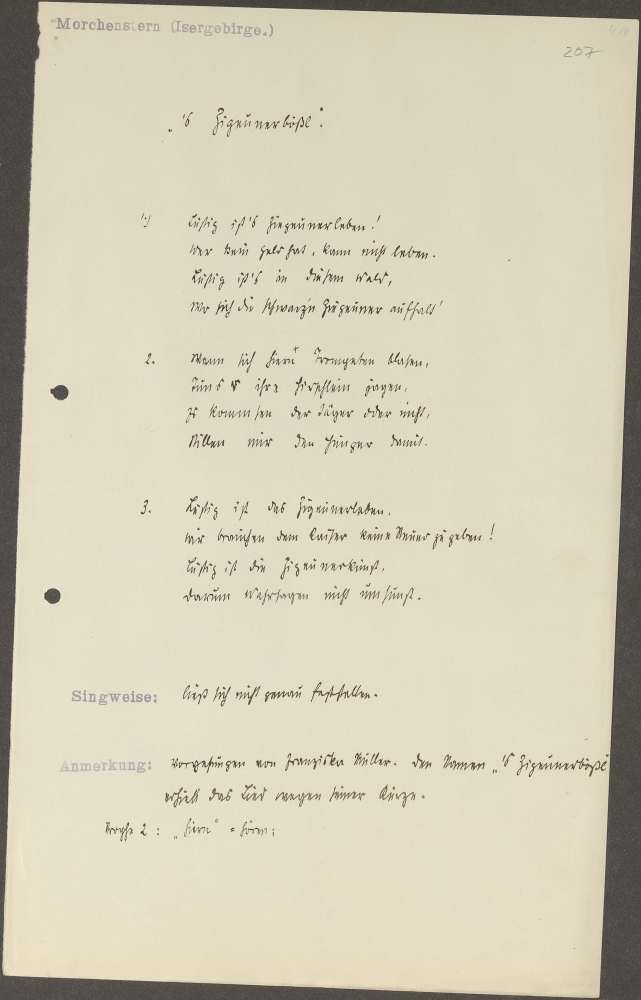 Morchenstern (Isergebirge.)
207
„'s Zigeunerbößl".
1.) Lustig ist's Ziegeunerleben!
Wer kein Geld hat, kann nicht leben.
Lustig ist's in diesem Wald,
Wo sich die schwarz'n Zigeuner aufhalt'
2. Wenn sich hiern' Trompeten blasen,
Tun s ihre Hirschlein jagen.
Es kommt der Jäger oder nicht,
Stillen wir den Hunger damit.
3. Lustig ist das Zigeunerleben.
Wir brauchen dem Kaiser keine Steuer zu geben!
Lustig ist die Zigeunerkunst,
Darum wahrsagen nicht umsunst.
Singweise: liess sich nicht genau feststellen.
Anmerkung: Vorgesungen von Franziska Müller. Den Namen „'s Zigeunerbößl"
erhielt das Lied wegen seiner Kürze.
Strophe 2: „hiern" = hören;